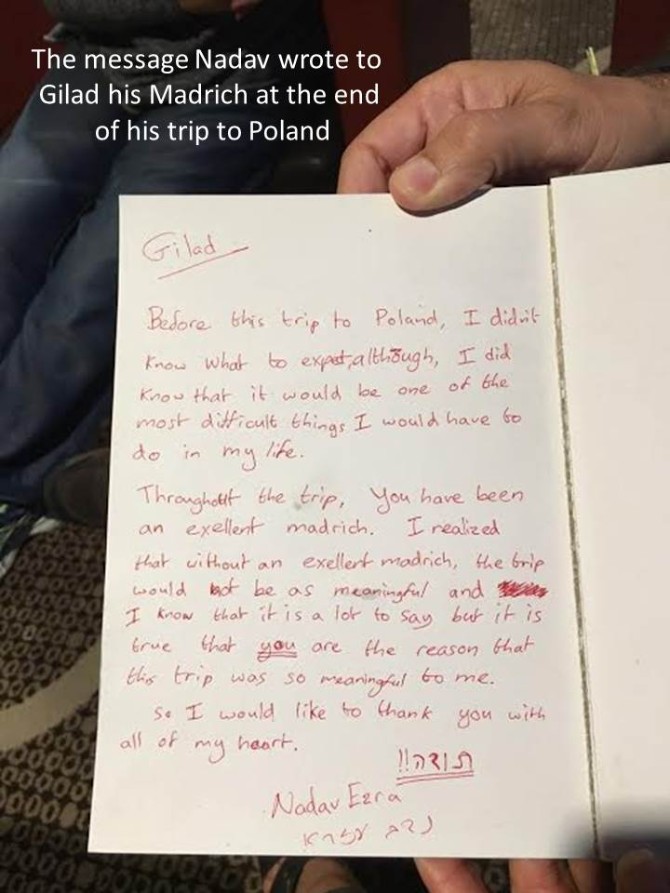 The message Nadav wrote to
Gilad his Madrich at the end
of his trip to Poland
Gilad
Before this trip to Poland, I didn't
know what to expet, although, I did
know that it would be one of the
most difficult things I would have to
do in my life.
Throughout the trip, You have been
an exellent madrich. I realized
that without an exellent madrich, the trip
would not be as meaningful and
I know that it is a lot to say but it is
true that you are the reason that
this trip was so meaningful to me.
So I would like to thank you with
all of my heart.
תודה!!
Nadav Ezra
נדב עזרא